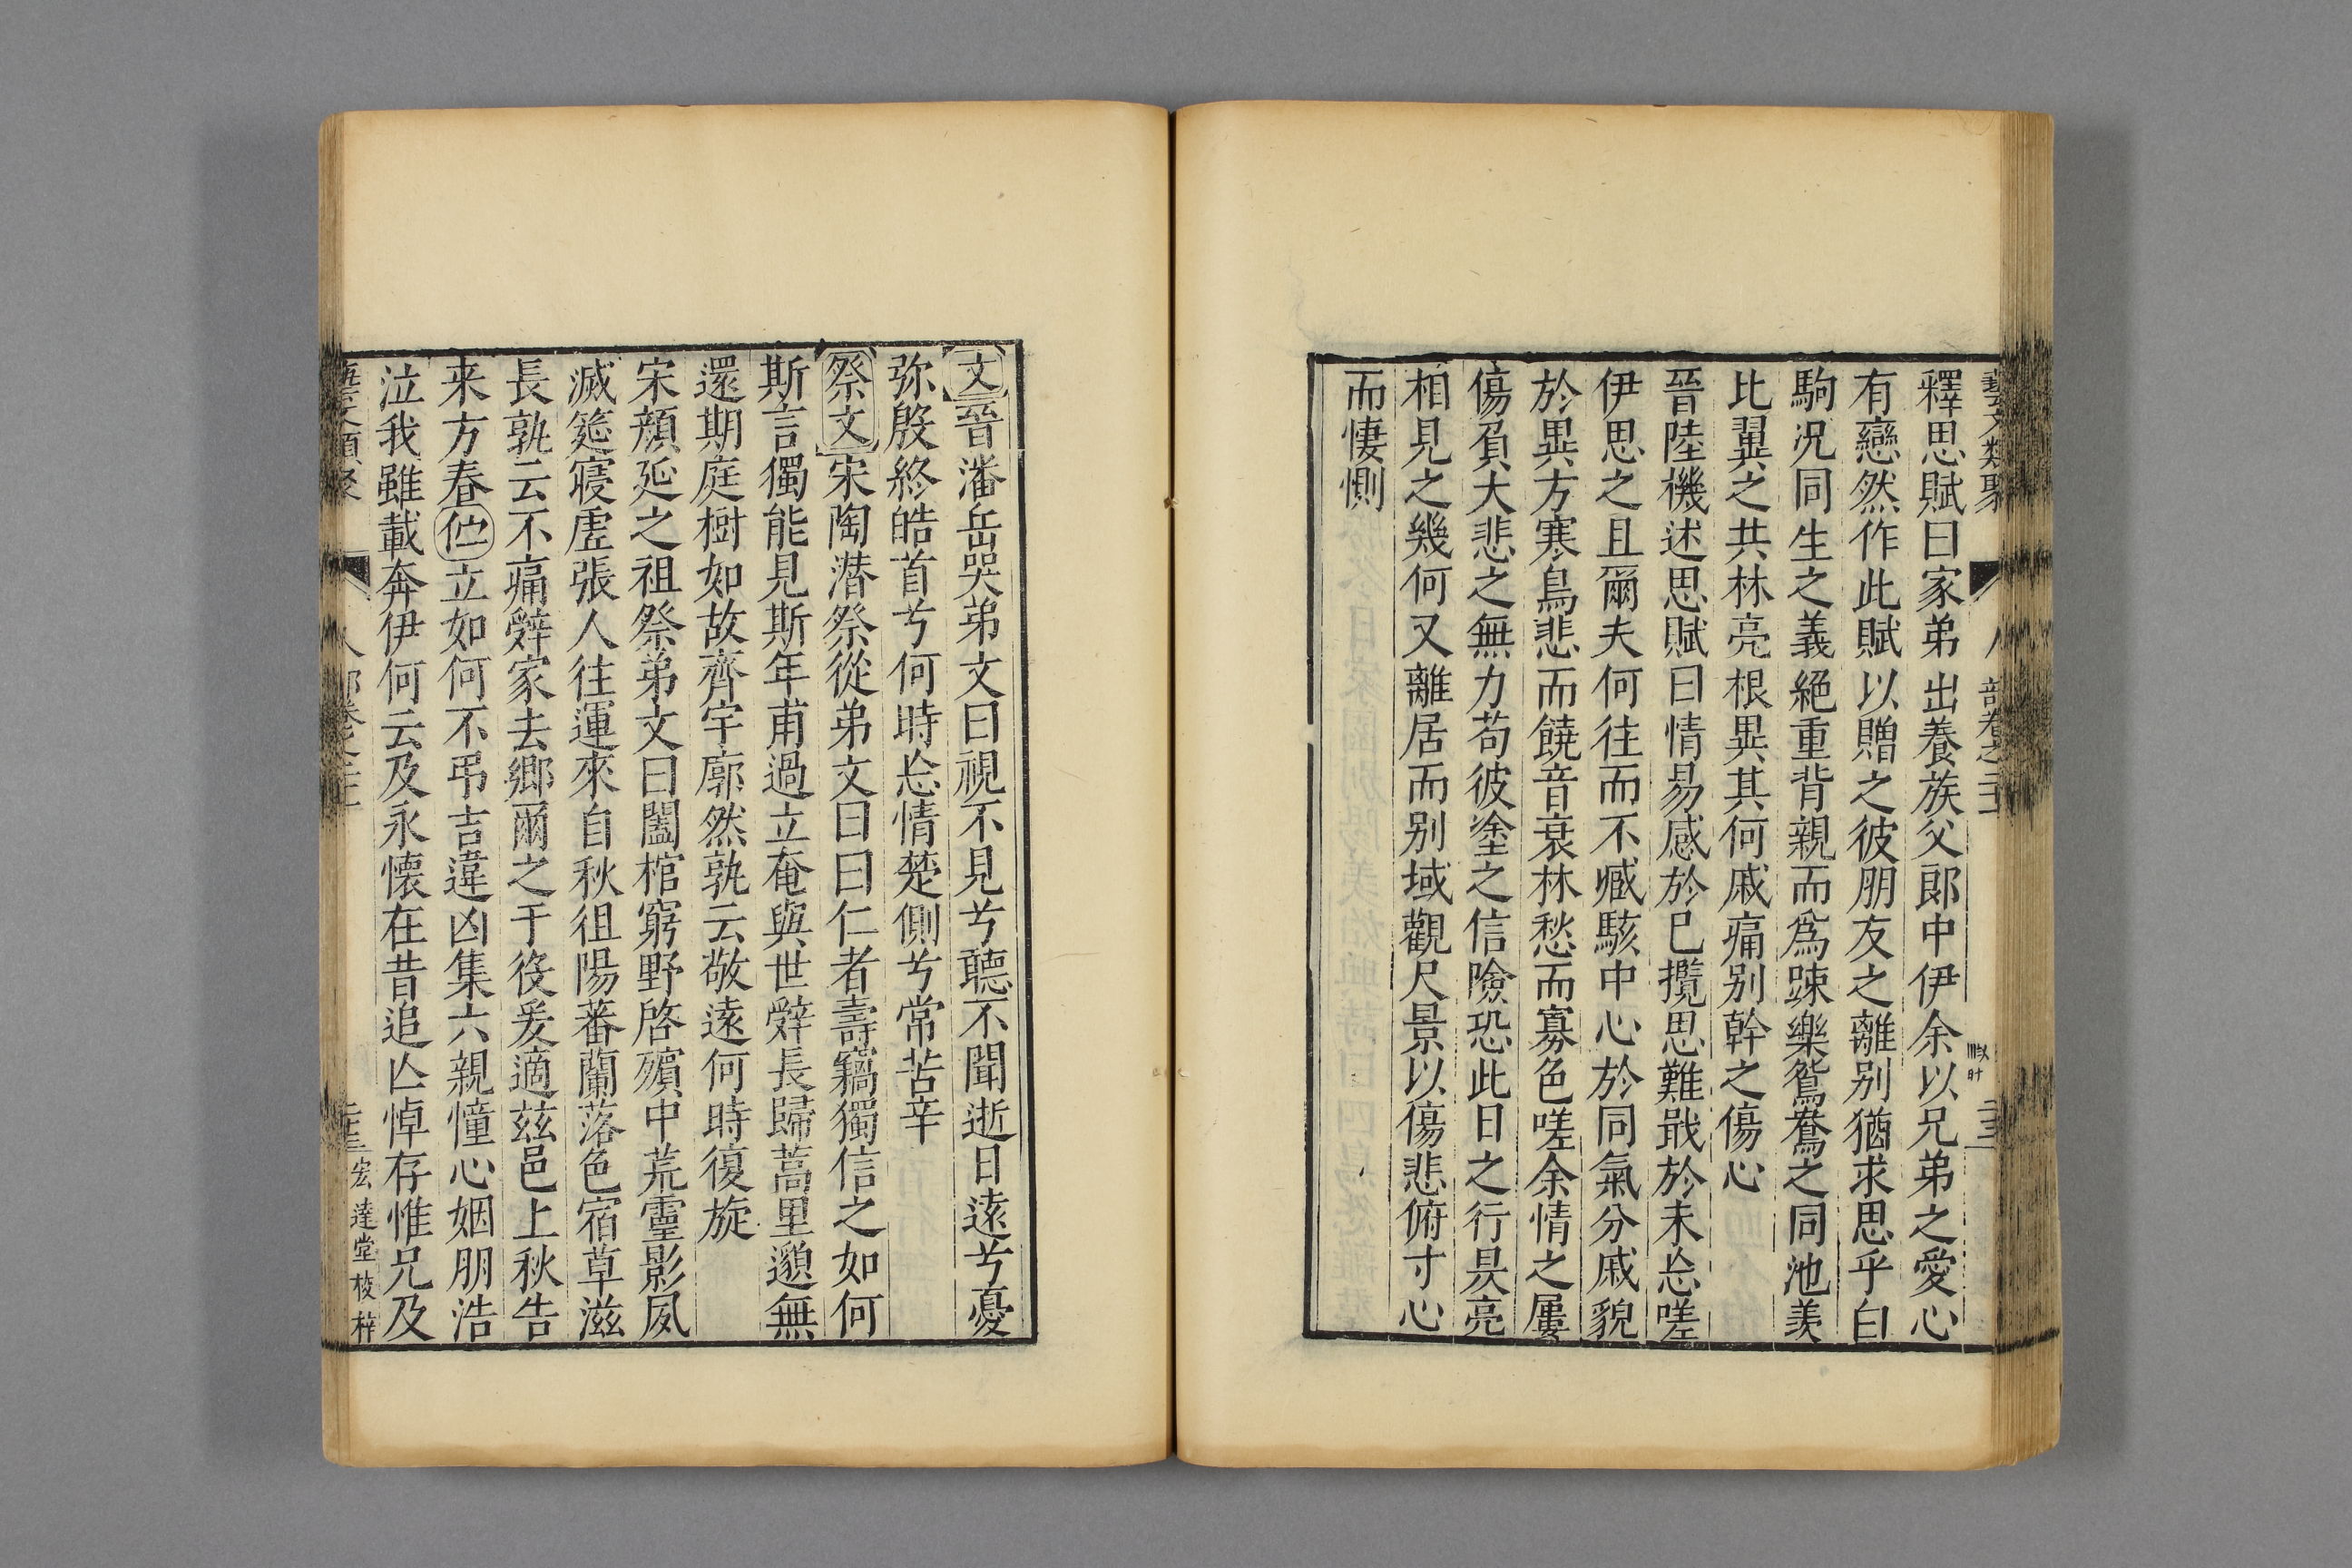 釋思賦曰家弟出養族父郎中伊余以兄弟之愛心
有戀然作此賦以贈之彼朋友之離别猶求思乎白
駒况同生之義絕重背親而爲踈樂鴛鴦之同池羨
比翼之共林亮根異其何戚痛别幹之傷心
晉陸機述思賦曰情易感於巳攬思難戢於未忘嗟
伊思之且爾夫何往而不臧駭中心於同氣分戚貌
於異方寒鳥悲而饒音衰林愁而寡色嗟余情之屢
傷負大悲之無力苟彼塗之信險恐此日之行昃亮
相見之幾何又離居而别域觀尺景以傷悲俯寸心
而悽惻
文晉潘岳哭弟文曰視不見兮聽不聞逝日遠兮憂
弥殷終皓首兮何時忘情楚側兮常苦辛
祭文宋陶潛祭從弟文曰曰仁者壽竊獨信之如何
斯言獨能見斯年甫過立奄與世辭長歸蒿里邈無
還期庭樹如故齊宇廓然孰云敬遠何時復旋
宋顏延之祖祭弟文曰闔棺窮野啓殯中荒靈影夙
滅筵寢虛張人往運來自秋徂陽蕃蘭落色宿草滋
長孰云不痛辭家去鄉爾之于役爰適兹邑上秋告
来方春伫立如何不弔吉違凶集六親憧心姻朋浩
泣我雖載奔伊何云及永懐在昔追亾悼存惟兄及
宏達堂校梓